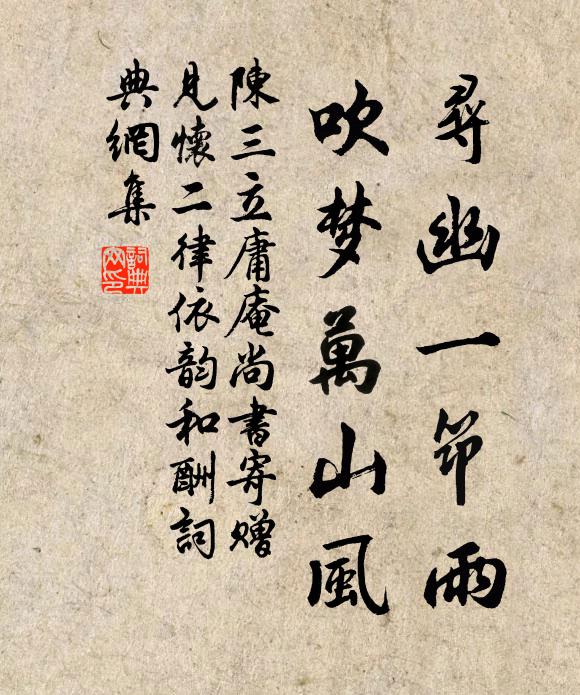 尋幽一笻雨
吹梦萬山風
陳三立庸庵尚書寄贈
見懷二律依韵和酬詞
典網集
詞典网印